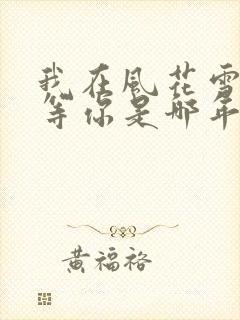 我在風花雪
等你是那年
黃福裕